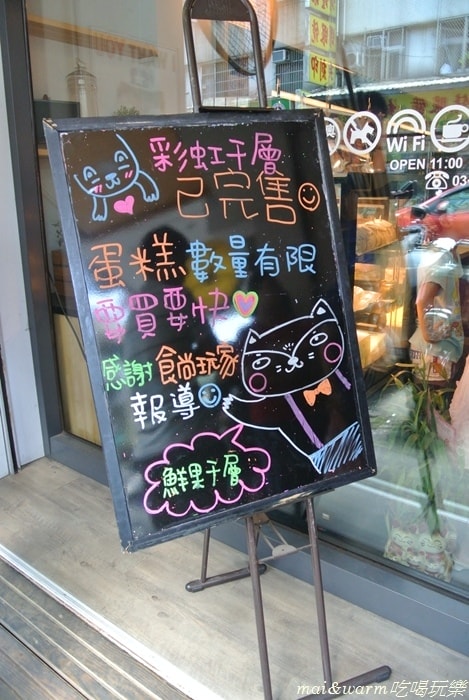 彩虹千層
已完售
蛋糕數量有限
要買要快
感謝食尚玩家
報導
鮮果千層
WiFi
OPEN 11:00
03-
mai&warm吃喝玩樂